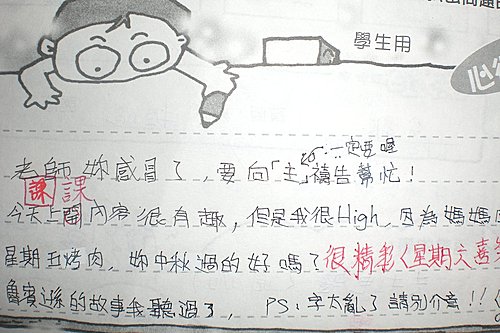 學生用
一定要喔
老師妳感冒了，要向「主」禱告幫忙！
課 課
今天上開內容很有趣，但是我很High，因為媽媽
星期五烤肉，妳中秋過的好嗎？很精彩
魯賓遜的故事我聽過了， PS：字太亂了請別介意！！